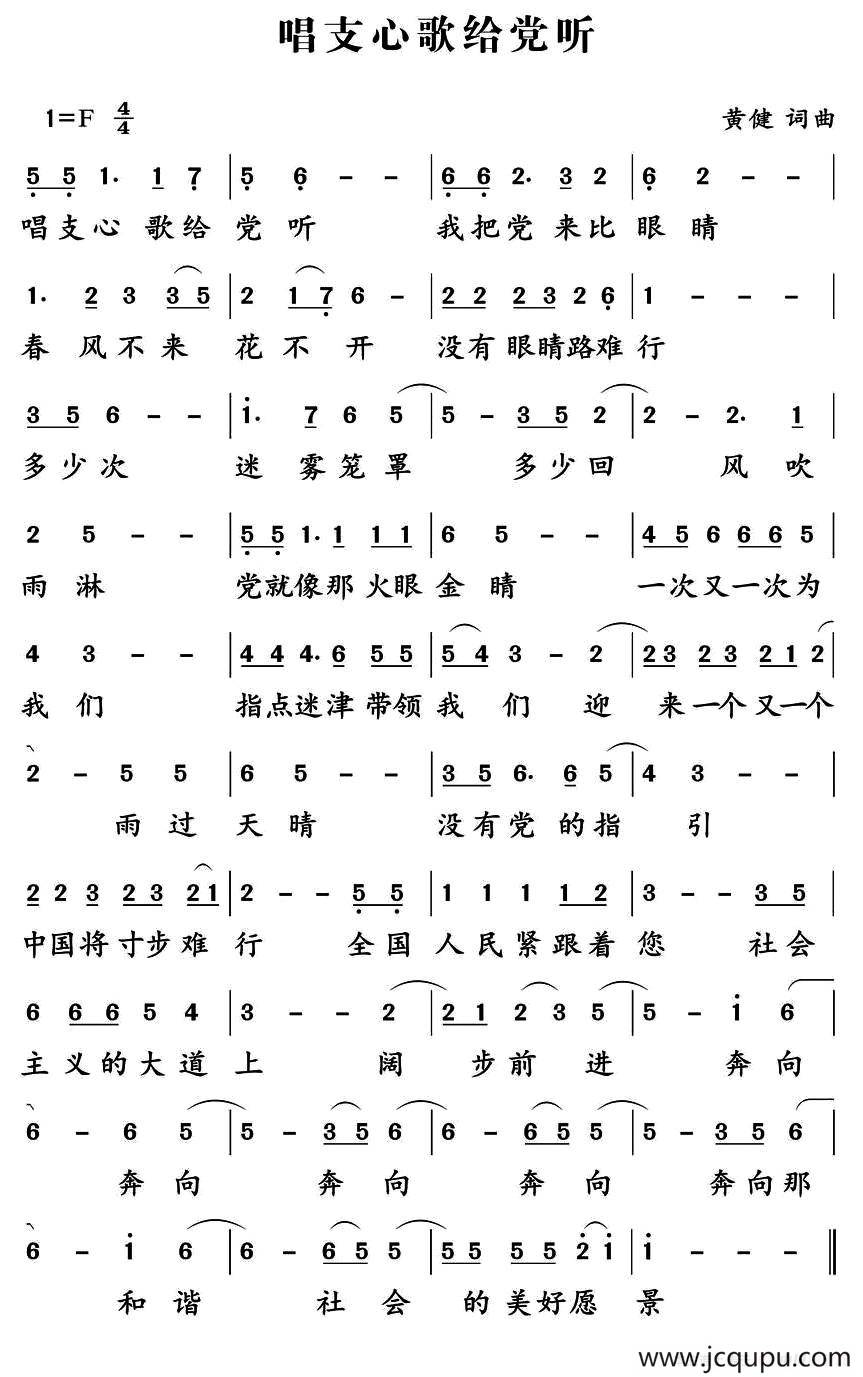 唱支心歌给党听
1=F 4/4 黄健 词曲
5 5 1. 1 7 | 5 6 - - | 6 6 2. 3 2 | 6 2 - - |
唱支心 歌给 党 听 我把党 来比 眼 睛
1. 2 3 3 5 | 2 1 7 6 - | 2 2 2 3 2 6 | 1 - - - |
春 风不 来 花 不 开 没有 眼睛路难 行
3 5 6 - - | i. 7 6 5 | 5 - 3 5 2 | 2 - 2. 1 |
多少次 迷 雾笼 罩 多少回 风 吹
2 5 - - | 5 5 1. 1 1 1 | 6 5 - - | 4 5 6 6 6 5 |
雨 淋 党就像那 火眼 金 睛 一次又一次为
4 3 - - | 4 4 4. 6 5 5 | 5 4 3 - 2 | 2 3 2 3 2 1 2 |
我 们 指点迷津 带领 我 们 迎 来 一个又一个
2 - 5 5 | 6 5 - - | 3 5 6. 6 5 | 4 3 - - |
雨 过 天 晴 没有党 的指 引
2 2 3 2 3 2 1 | 2 - - 5 5 | 1 1 1 1 2 | 3 - - 3 5 |
中国将 寸步 难 行 全国 人民紧 跟着 您 社会
6 6 6 5 4 | 3 - - 2 | 2 1 2 3 5 | 5 - i 6 |
主 义的 大 道 上 阔 步前 进 奔 向
6 - 6 5 | 5 - 3 5 6 | 6 - 6 5 5 | 5 - 3 5 6 |
奔 向 奔 向 奔 向 奔向那
6 - i 6 | 6 - 6 5 5 | 5 5 5 5 2 i | i - - - ||
和 谐 社 会 的 美好愿 景
www.jcqupu.com